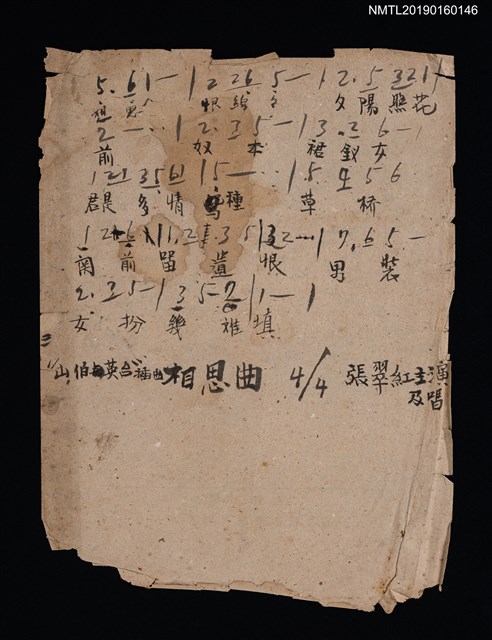 NMTL20190160146
5. 6 1 — | 2 26 5 — | 2. 5 321
恨 綿 夕 陽 照 花
2 — · · | 2. 3 5 — | 3 . 2 6 —
前 奴 本 裙 釵 女
1 21 35 61 | 5 — · · | 5. 5 6
君是 多 情 種 草 橋
3 5 | 2 — · · | 7. 6 5 —
南 前 留 遺 恨 男 裝
2. 3 5 — | 3 5 | 1 — |
女 扮 幾 誰 填
山伯英台插曲 相思曲 4/4 張翠紅主演及唱